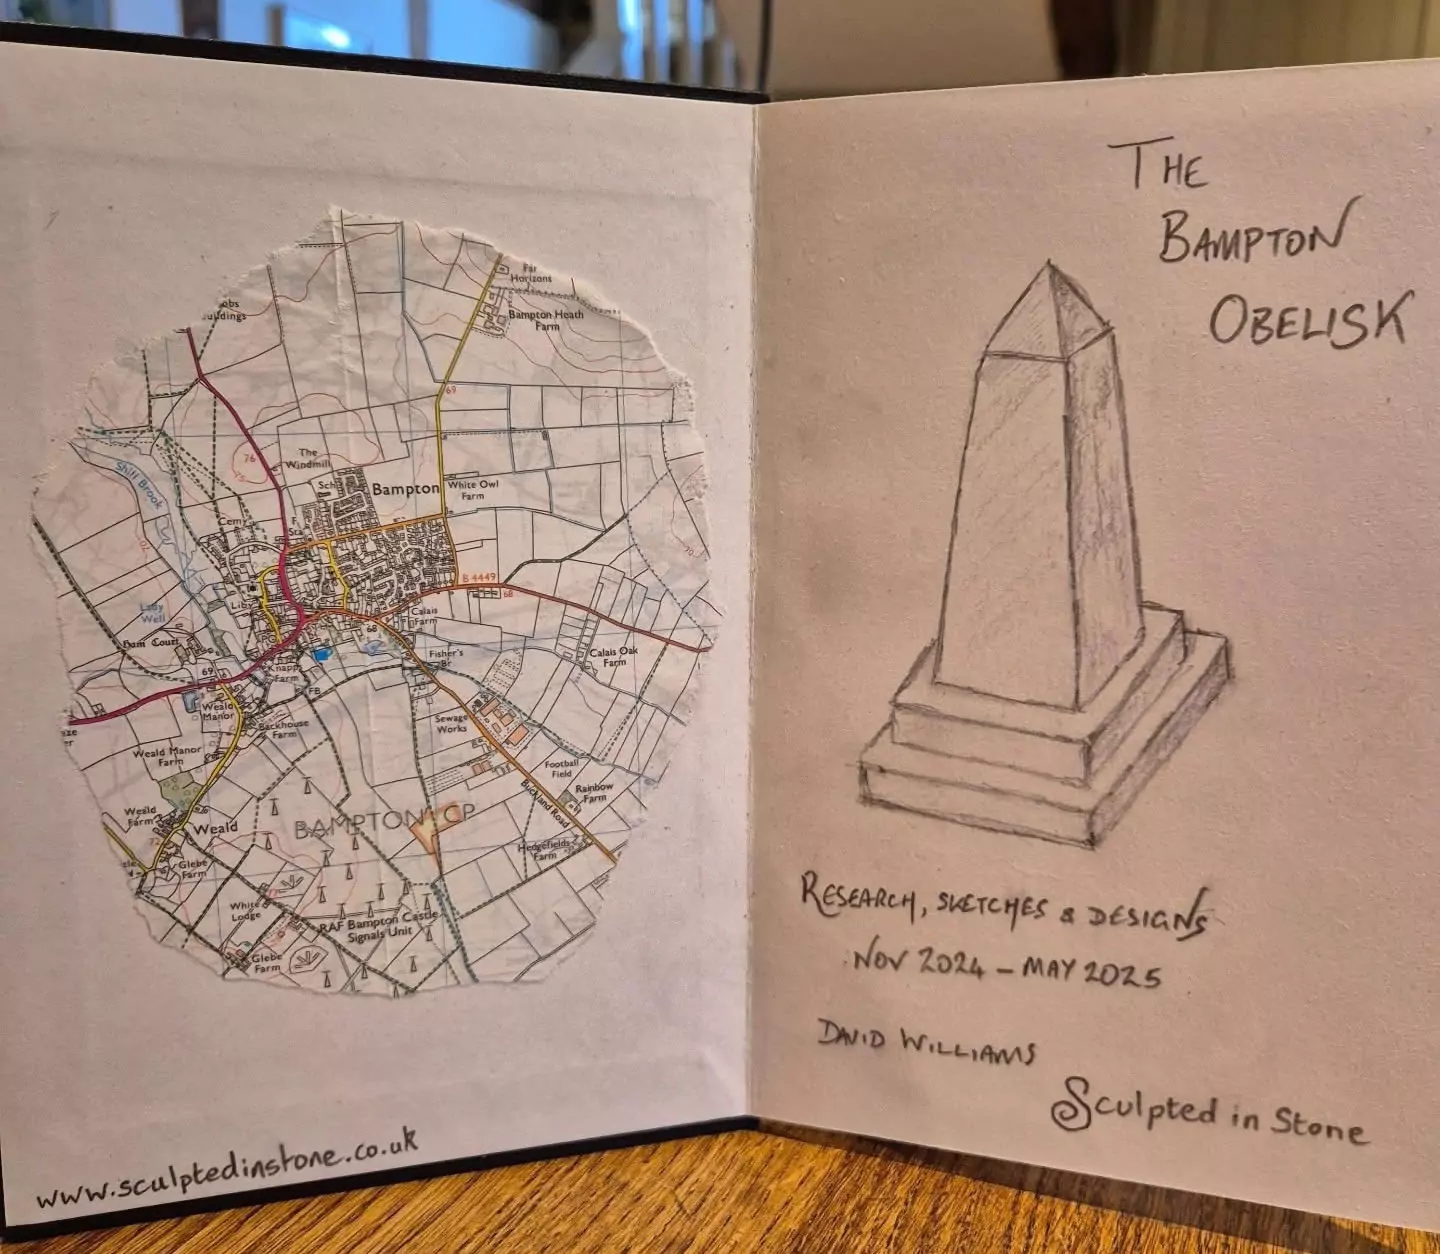 Far
Horizons
Bampton Heath
Farm
69
76
The
Windmill
Sch
Bampton
White Owl
Farm
Shill Brook
Cemy
70
70
B 4449
68
Lady
Well
Liby
Calais
Farm
68
Ham Court
Fisher's
Br
Calais Oak
Farm
69
Knapp
Farm
FB
Weald
Manor
Backhouse
Farm
Sewage
Works
Weald Manor
Farm
Football
Field
Rainbow
Farm
Buckland Road
Weald
Farm
Weald
BAMPTON CP
Hedgefields
Farm
Glebe
Farm
White
Lodge
RAF Bampton Castle
Signals Unit
Glebe
Farm
www.sculptedinstone.co.uk
THE
BAMPTON
OBELISK
RESEARCH, SKETCHES & DESIGNS
NOV 2024 – MAY 2025
DAVID WILLIAMS
Sculpted in Stone